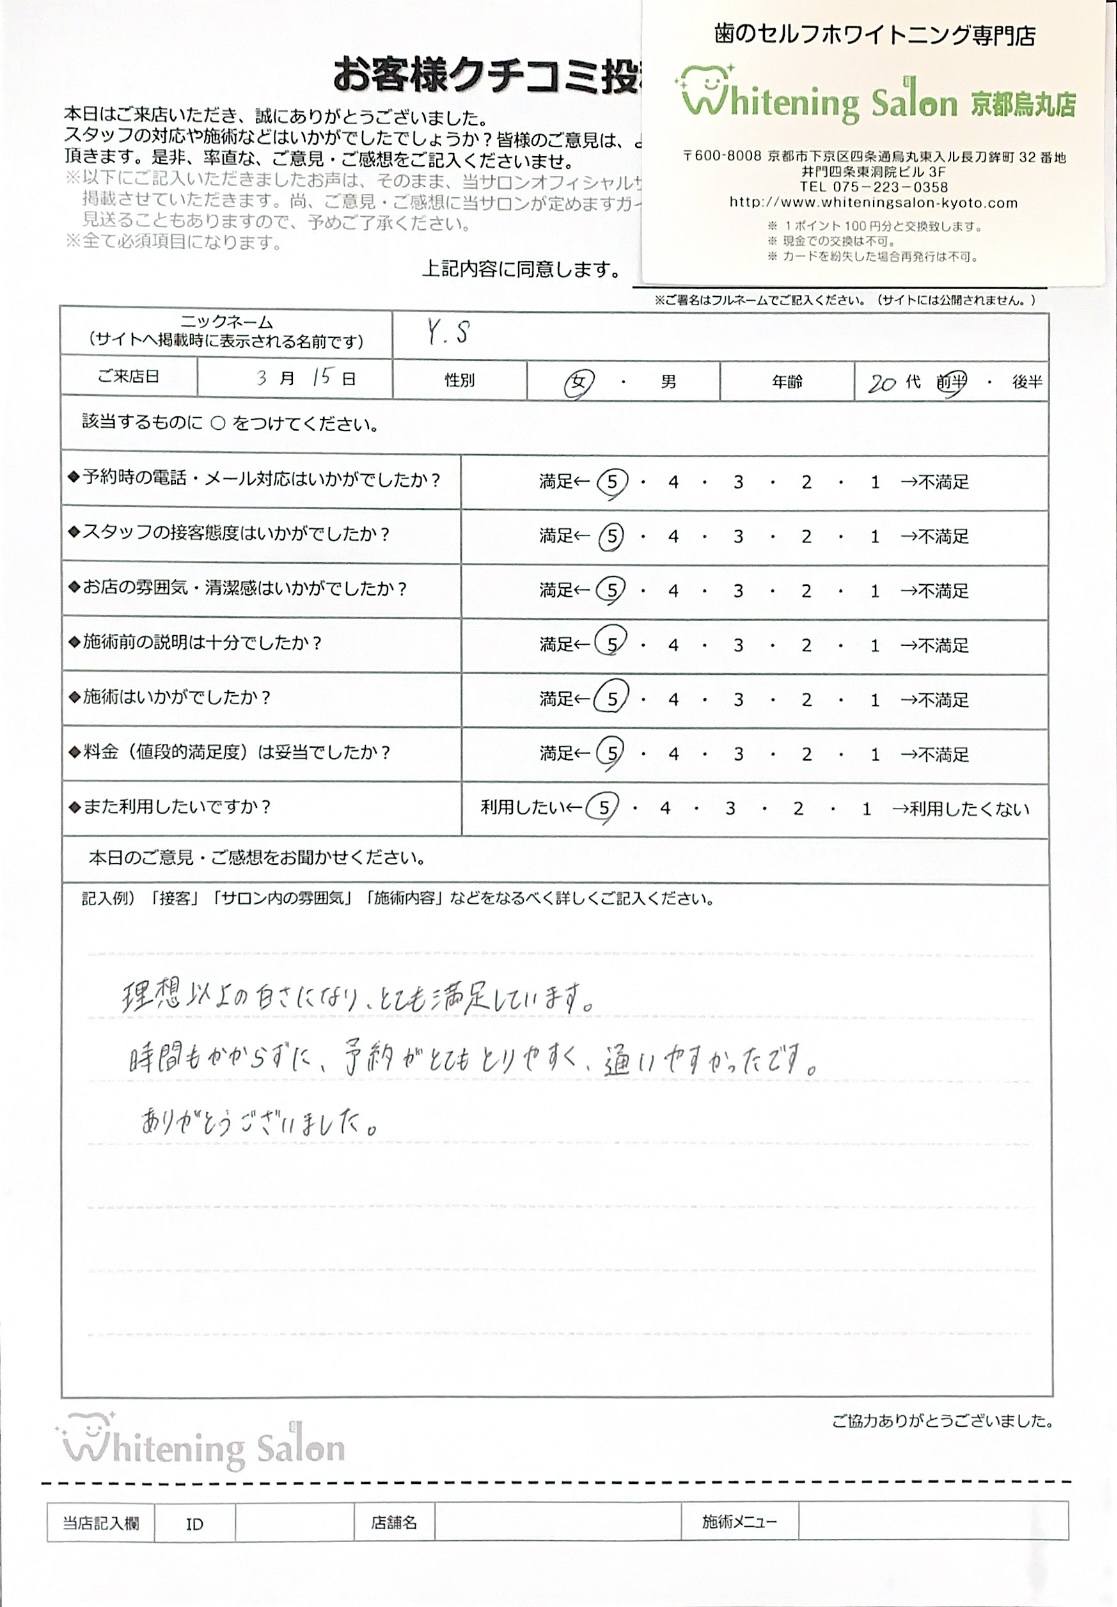 歯のセルフホワイトニング専門店
Whitening Salon 京都烏丸店
〒600-8008 京都市下京区四条通烏丸東入ル長刀鉾町 32 番地
井門四条東洞院ビル 3F
TEL 075-223-0358
http://www.whiteningsalon-kyoto.com
※ 1ポイント100円分と交換致します。
※ 現金での交換は不可。
※ カードを紛失した場合再発行は不可。
お客様クチコミ投
本日はご来店いただき、誠にありがとうございました。
スタッフの対応や施術などはいかがでしたでしょうか？皆様のご意見は、
頂きます。是非、率直な、ご意見・ご感想をご記入くださいませ。
※以下にご記入いただきましたお声は、そのまま、当サロンオフィシャルサ
掲載させていただきます。尚、ご意見・ご感想に当サロンが定めますガイ
見送ることもありますので、予めご了承ください。
※全て必須項目になります。
上記内容に同意します。
※ご署名はフルネームでご記入ください。（サイトには公開されません。）
ニックネーム
（サイトへ掲載時に表示される名前です） Y.S
ご来店日 3 月 15 日 性別 女 ・ 男 年齢 20 代 前半 ・ 後半
該当するものに ○ をつけてください。
◆予約時の電話・メール対応はいかがでしたか？ 満足← 5 ・ 4 ・ 3 ・ 2 ・ 1 →不満足
◆スタッフの接客態度はいかがでしたか？ 満足← 5 ・ 4 ・ 3 ・ 2 ・ 1 →不満足
◆お店の雰囲気・清潔感はいかがでしたか？ 満足← 5 ・ 4 ・ 3 ・ 2 ・ 1 →不満足
◆施術前の説明は十分でしたか？ 満足← 5 ・ 4 ・ 3 ・ 2 ・ 1 →不満足
◆施術はいかがでしたか？ 満足← 5 ・ 4 ・ 3 ・ 2 ・ 1 →不満足
◆料金（値段的満足度）は妥当でしたか？ 満足← 5 ・ 4 ・ 3 ・ 2 ・ 1 →不満足
◆また利用したいですか？ 利用したい← 5 ・ 4 ・ 3 ・ 2 ・ 1 →利用したくない
本日のご意見・ご感想をお聞かせください。
記入例）「接客」「サロン内の雰囲気」「施術内容」などをなるべく詳しくご記入ください。
理想以上の白さになり、とても満足しています。
時間もかからずに、予約がとてもとりやすく、通いやすかったです。
ありがとうございました。
ご協力ありがとうございました。
Whitening Salon
当店記入欄 ID 店舗名 施術メニュー